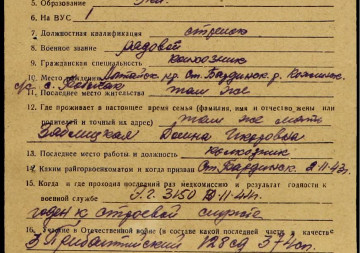 5. Образование
6. На ВУС
7. Должностная квалификация стрелок
8. Военное звание рядовой
9. Гражданская специальность колхозник
10. Место рождения
с/с с.
11. Последнее место жительства там же
12. Где проживает в настоящее время семья (фамилия, имя и отчество жены или
родителей и точный их адрес) там же мать
13. Последнее место работы и должность колхозник
14. Каким райгорвоенкоматом и когда призван Ст. Бардинск. 2-11-43г.
15. Когда и где проходил последний раз медкомиссию и результат годности к
военной службе Э.Г. 3150 11-44г.
годен к строевой службе
16. Участие в Отечественной войне (в составе какой последней части в качестве
3 Прибалтийский 128 сд 374 сп.